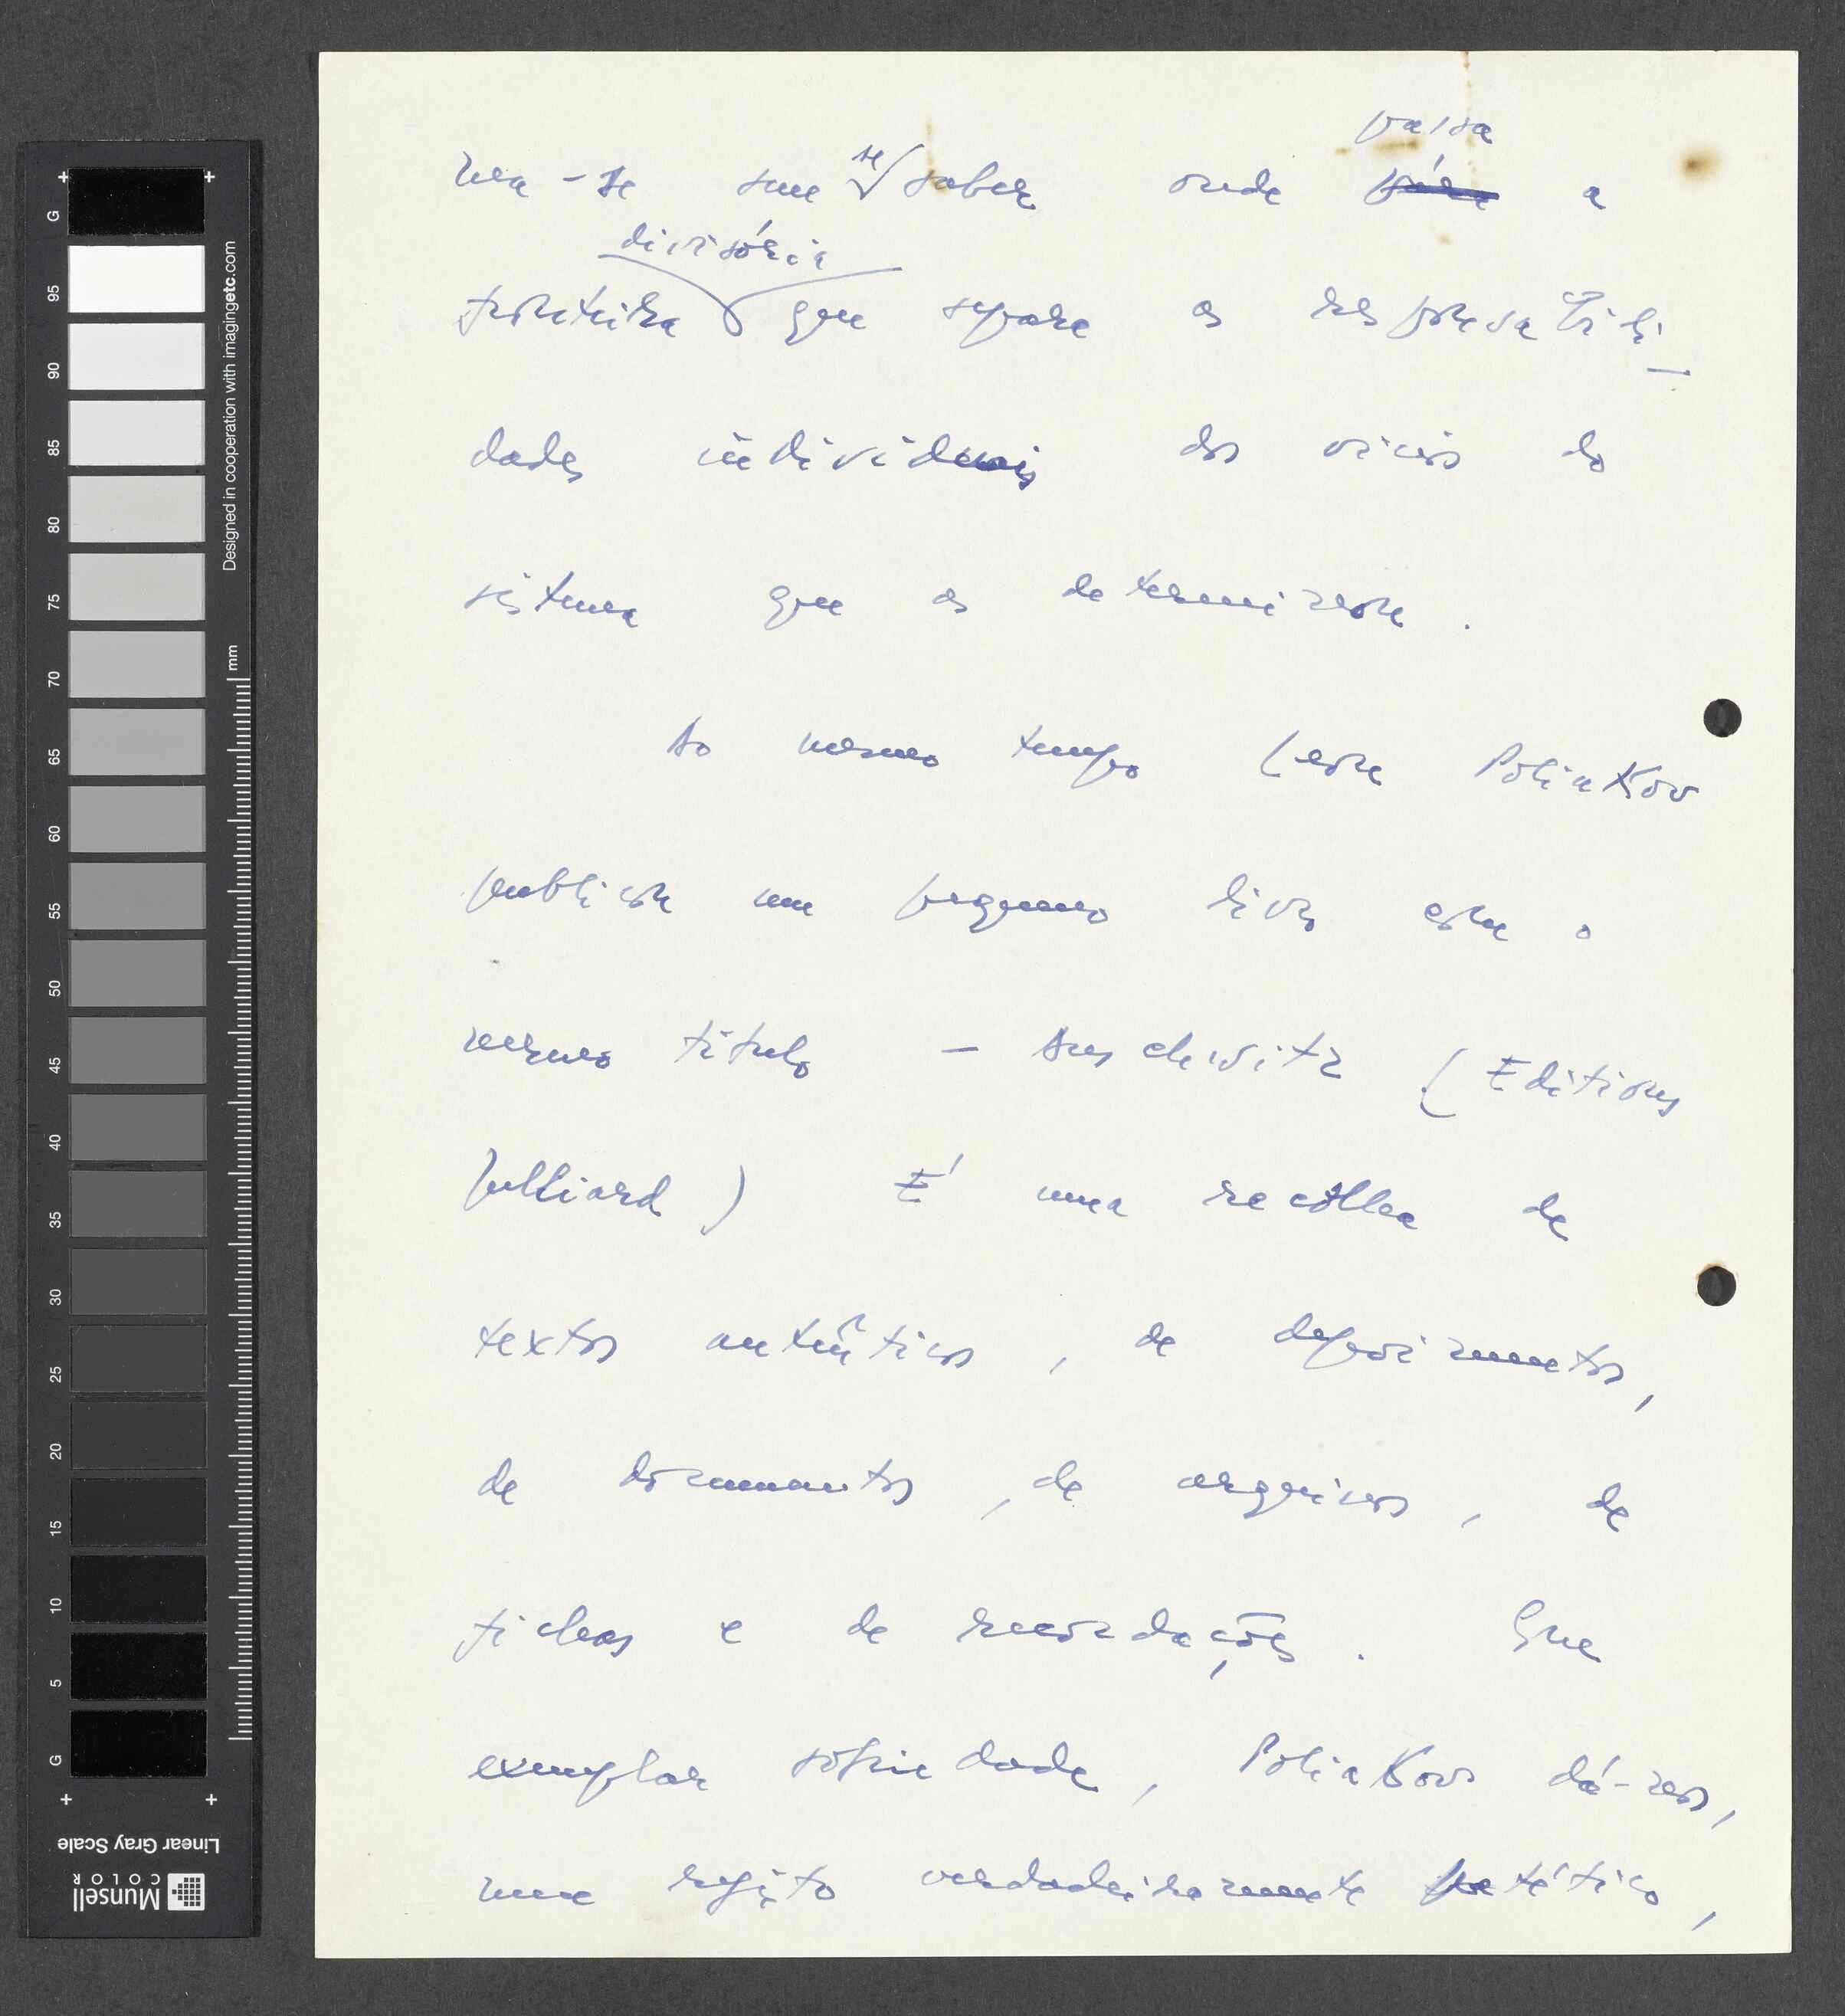 na-se sem se saber onde passa a
fronteira divisória que separa as responsabili-
dades individuais dos vícios do
sistema que as determinou.
Ao mesmo tempo Léon Poliakov
publicou um pequeno livro com o
mesmo título - Auschwitz (Editions
Julliard) É uma recolha de
textos autênticos, de depoimentos,
de documentos, de arquivos, de
fichas e de recordações. Que
exemplar sobriedade, Poliakov dá-nos,
num registo verdadeiramente patético,
G 95 90 85 80 75 70 65 60 55 50 45 40 35 30 25 20 15 10 5 G
mm
Designed in cooperation with imagingetc.com
Linear Gray Scale
Munsell
COLOR